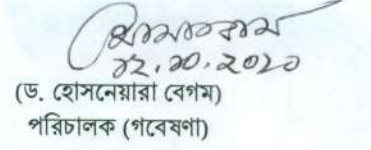 ১২.১০.২০২০
(ড. হোসনেয়ারা বেগম)
পরিচালক (গবেষণা)